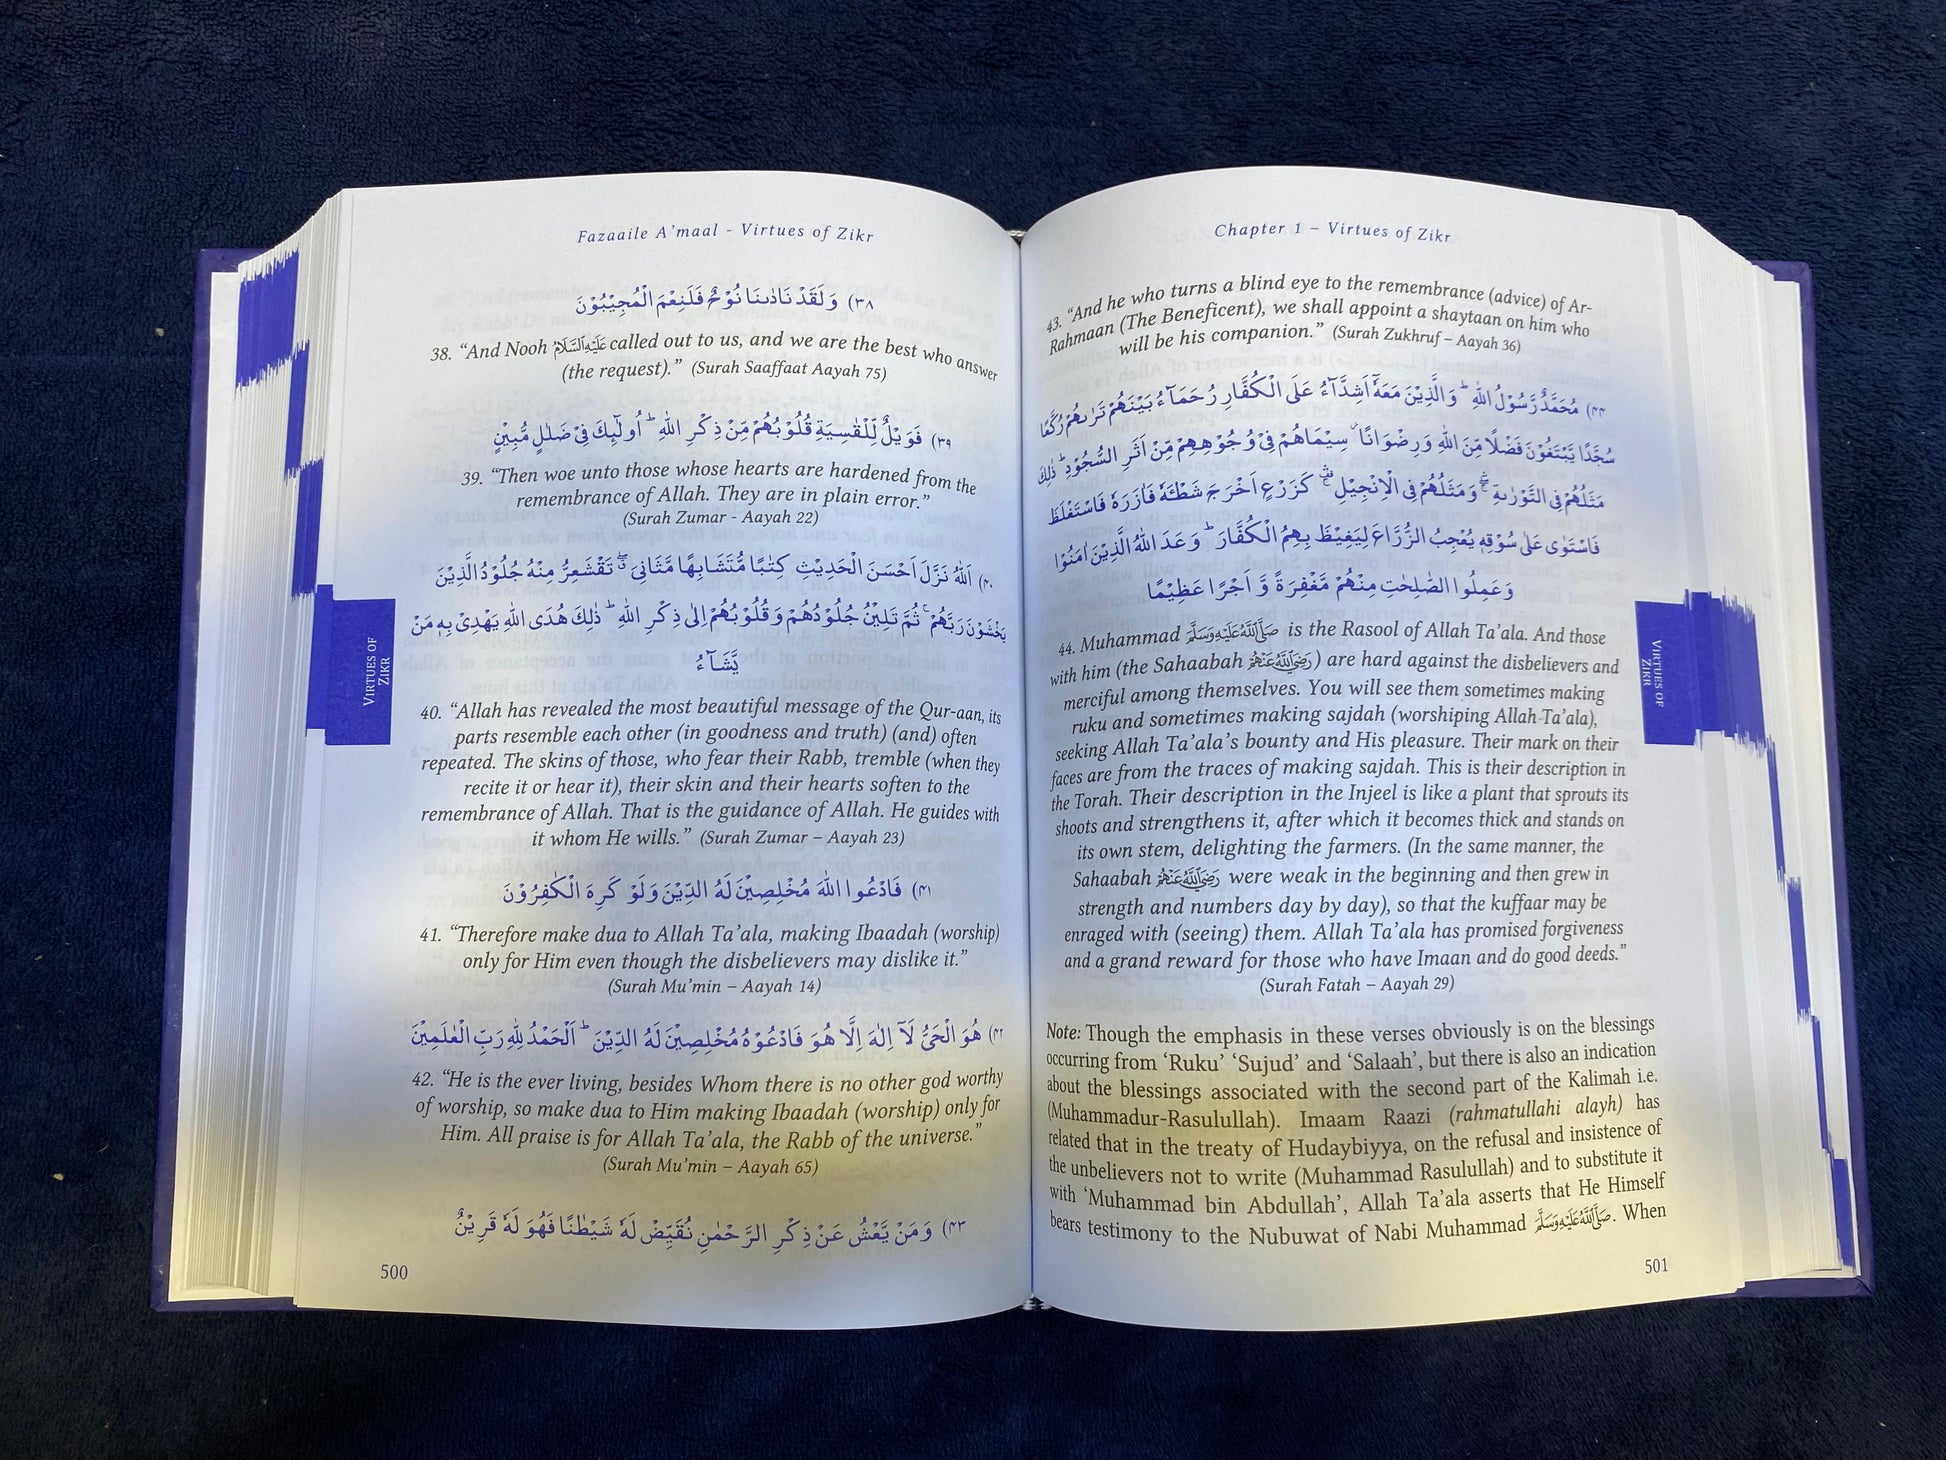 Fazaaile A’maal - Virtues of Zikr
(٣٨ وَلَقَدْ نَادٰىنَا نُوْحٌ فَلَنِعْمَ الْمُجِيْبُوْنَ
38. “And Nooh عَلَيْهِ السَّلَامُ called out to us, and we are the best who answer
(the request).” (Surah Saaffaat Aayah 75)
(٣٩ فَوَيْلٌ لِّلْقٰسِيَةِ قُلُوْبُهُمْ مِّنْ ذِكْرِ اللهِ ؕ اُولٰٓئِكَ فِيْ ضَلٰلٍ مُّبِيْنٍ
39. “Then woe unto those whose hearts are hardened from the
remembrance of Allah. They are in plain error.”
(Surah Zumar - Aayah 22)
(۴۰ اَللهُ نَزَّلَ اَحْسَنَ الْحَدِيْثِ كِتٰبًا مُّتَشَابِهًا مَّثَانِيَ ۖ تَقْشَعِرُّ مِنْهُ جُلُوْدُ الَّذِيْنَ
يَخْشَوْنَ رَبَّهُمْ ۚ ثُمَّ تَلِيْنُ جُلُوْدُهُمْ وَقُلُوْبُهُمْ اِلٰى ذِكْرِ اللهِ ؕ ذٰلِكَ هُدَى اللهِ يَهْدِيْ بِهٖ مَنْ
يَّشَآءُ
40. “Allah has revealed the most beautiful message of the Qur-aan, its
parts resemble each other (in goodness and truth) (and) often
repeated. The skins of those, who fear their Rabb, tremble (when they
recite it or hear it), their skin and their hearts soften to the
remembrance of Allah. That is the guidance of Allah. He guides with
it whom He wills.” (Surah Zumar – Aayah 23)
(۴۱ فَادْعُوا اللهَ مُخْلِصِيْنَ لَهُ الدِّيْنَ وَلَوْ كَرِهَ الْكٰفِرُوْنَ
41. “Therefore make dua to Allah Ta’ala, making Ibaadah (worship)
only for Him even though the disbelievers may dislike it.”
(Surah Mu’min – Aayah 14)
(۴۲ هُوَ الْحَيُّ لَآ اِلٰهَ اِلَّا هُوَ فَادْعُوْهُ مُخْلِصِيْنَ لَهُ الدِّيْنَ ؕ اَلْحَمْدُ لِلّٰهِ رَبِّ الْعٰلَمِيْنَ
42. “He is the ever living, besides Whom there is no other god worthy
of worship, so make dua to Him making Ibaadah (worship) only for
Him. All praise is for Allah Ta’ala, the Rabb of the universe.”
(Surah Mu’min – Aayah 65)
(۴۳ وَمَنْ يَّعْشُ عَنْ ذِكْرِ الرَّحْمٰنِ نُقَيِّضْ لَهٗ شَيْطٰنًا فَهُوَ لَهٗ قَرِيْنٌ
500
VIRTUES OF
ZIKR
Chapter 1 – Virtues of Zikr
43. “And he who turns a blind eye to the remembrance (advice) of Ar-
Rahmaan (The Beneficent), we shall appoint a shaytaan on him who
will be his companion.” (Surah Zukhruf – Aayah 36)
(۴۴ مُحَمَّدٌ رَّسُوْلُ اللهِ ؕ وَالَّذِيْنَ مَعَهٗٓ اَشِدَّآءُ عَلَى الْكُفَّارِ رُحَمَآءُ بَيْنَهُمْ تَرٰىهُمْ رُكَّعًا
سُجَّدًا يَّبْتَغُوْنَ فَضْلًا مِّنَ اللهِ وَرِضْوَانًا ۫ سِيْمَاهُمْ فِيْ وُجُوْهِهِمْ مِّنْ اَثَرِ السُّجُوْدِ ؕ ذٰلِكَ
مَثَلُهُمْ فِى التَّوْرٰىةِ ۛ ۖ وَمَثَلُهُمْ فِى الْاِنْجِيْلِ ۛ ۚ كَزَرْعٍ اَخْرَجَ شَطْـَٔهٗ فَاٰزَرَهٗ فَاسْتَغْلَظَ
فَاسْتَوٰى عَلٰى سُوْقِهٖ يُعْجِبُ الزُّرَّاعَ لِيَغِيْظَ بِهِمُ الْكُفَّارَ ؕ وَعَدَ اللهُ الَّذِيْنَ اٰمَنُوْا
وَعَمِلُوا الصّٰلِحٰتِ مِنْهُمْ مَّغْفِرَةً وَّ اَجْرًا عَظِيْمًا
44. Muhammad صَلَّى اللهُ عَلَيْهِ وَسَلَّمَ is the Rasool of Allah Ta’ala. And those
with him (the Sahaabah رَضِيَ اللهُ عَنْهُمْ) are hard against the disbelievers and
merciful among themselves. You will see them sometimes making
ruku and sometimes making sajdah (worshiping Allah Ta’ala),
seeking Allah Ta’ala’s bounty and His pleasure. Their mark on their
faces are from the traces of making sajdah. This is their description in
the Torah. Their description in the Injeel is like a plant that sprouts its
shoots and strengthens it, after which it becomes thick and stands on
its own stem, delighting the farmers. (In the same manner, the
Sahaabah رَضِيَ اللهُ عَنْهُمْ were weak in the beginning and then grew in
strength and numbers day by day), so that the kuffaar may be
enraged with (seeing) them. Allah Ta’ala has promised forgiveness
and a grand reward for those who have Imaan and do good deeds.”
(Surah Fatah – Aayah 29)
Note: Though the emphasis in these verses obviously is on the blessings
occurring from ‘Ruku’ ‘Sujud’ and ‘Salaah’, but there is also an indication
about the blessings associated with the second part of the Kalimah i.e.
(Muhammadur-Rasulullah). Imaam Raazi (rahmatullahi alayh) has
related that in the treaty of Hudaybiyya, on the refusal and insistence of
the unbelievers not to write (Muhammad Rasulullah) and to substitute it
with ‘Muhammad bin Abdullah’, Allah Ta’ala asserts that He Himself
bears testimony to the Nubuwat of Nabi Muhammad صَلَّى اللهُ عَلَيْهِ وَسَلَّمَ. When
501
VIRTUES OF
ZIKR